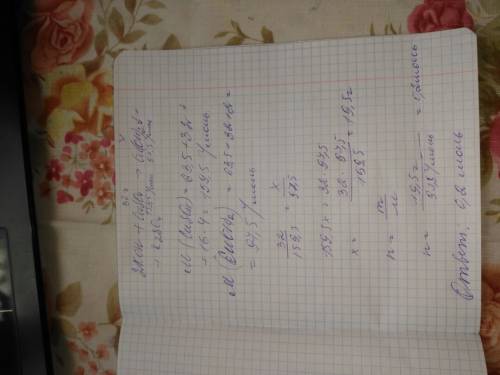 32 г x
2KOH + CuSO4 → Cu(OH)2↓ +
159,5 г/моль 97,5 г/моль
+ K2SO4
M (CuSO4) = 63,5 + 32 +
+ 16 · 4 = 159,5 г/моль
M (Cu(OH)2) = 63,5 + 32 + 2 =
= 97,5 г/моль
32 / 159,5 = x / 97,5
159,5x = 32 · 97,5
x = 32 · 97,5 / 159,5 = 19,5 г
n = m / M
n = 19,5 г / г/моль = 0,2 моль
Ответ. 0,2 моль